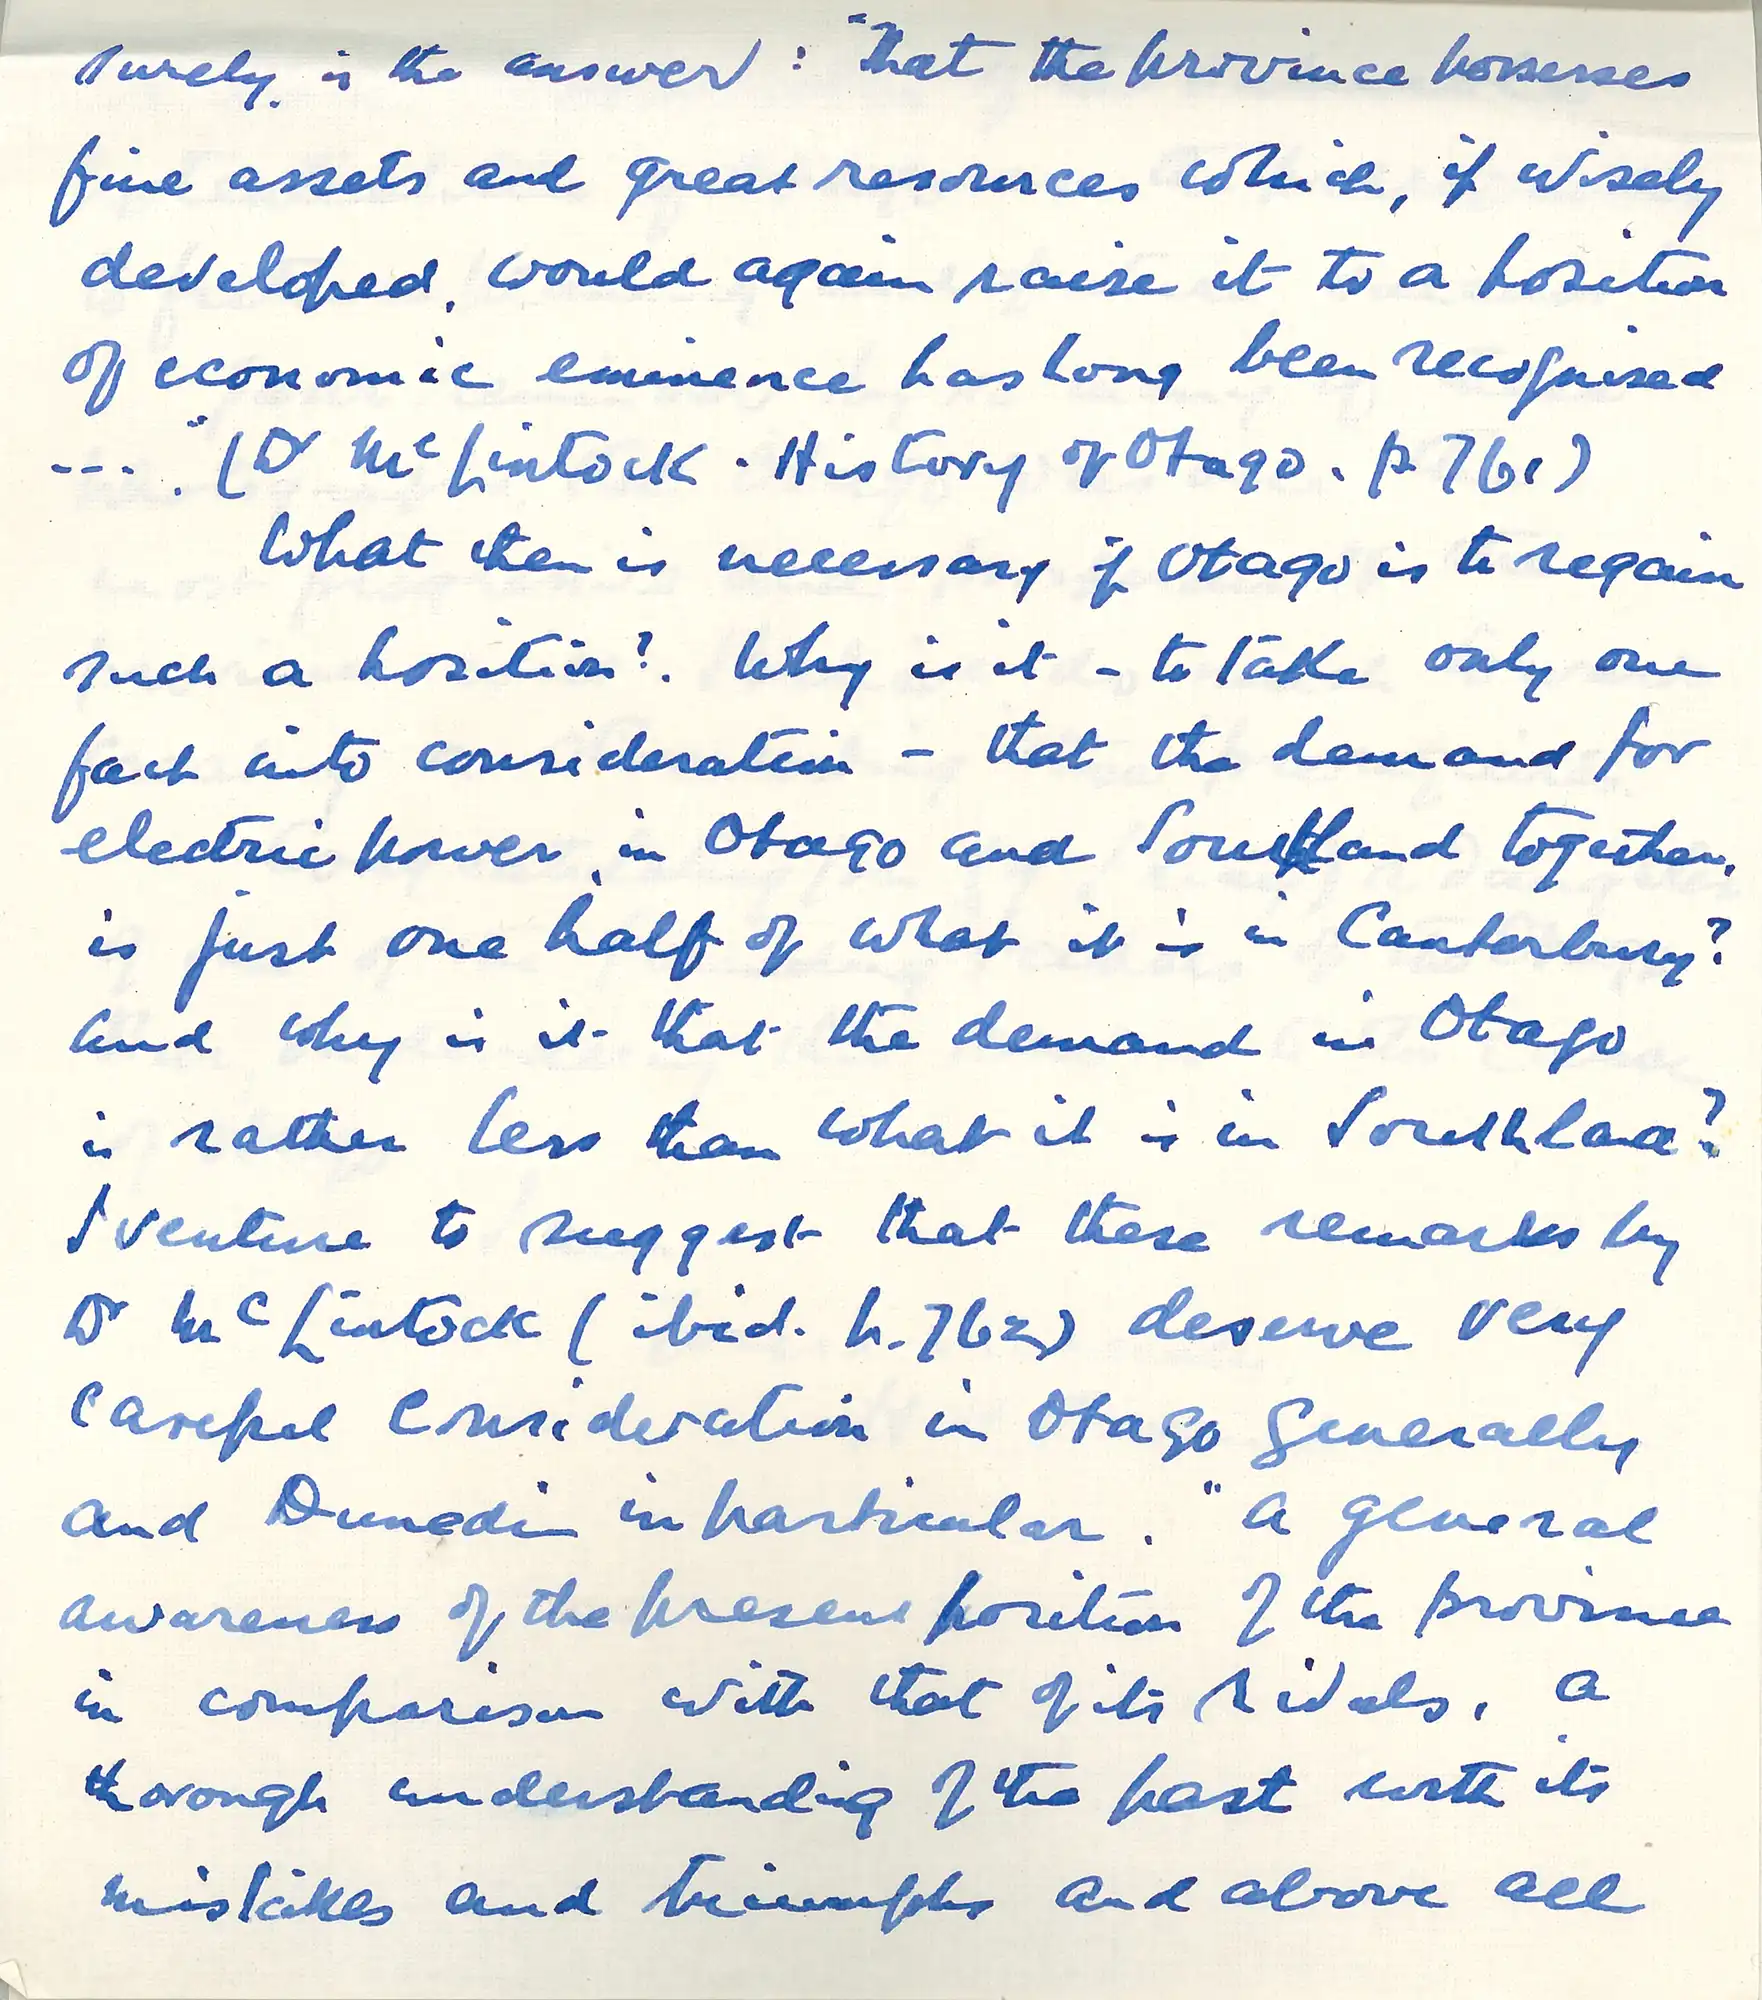 surely, is the answer: "That the province possesses
fine assets and great resources which, if wisely
developed, would again raise it to a position
of economic eminence has long been recognised
---." (Dr McLintock. History of Otago. p. 761)
What then is necessary if Otago is to regain
such a position?. Why is it - to take only one
fact into consideration - that the demand for
electric power, in Otago and Southland together,
is just one half of what it is in Canterbury?
And why is it that the demand in Otago
is rather less than what it is in Southland?
I venture to suggest that these remarks by
Dr McLintock (ibid. p. 762) deserve very
careful consideration in Otago generally
and Dunedin in particular. "A general
awareness of the present position of the province
in comparison with that of its rivals, a
thorough understanding of the past with its
mistakes and triumphs and above all